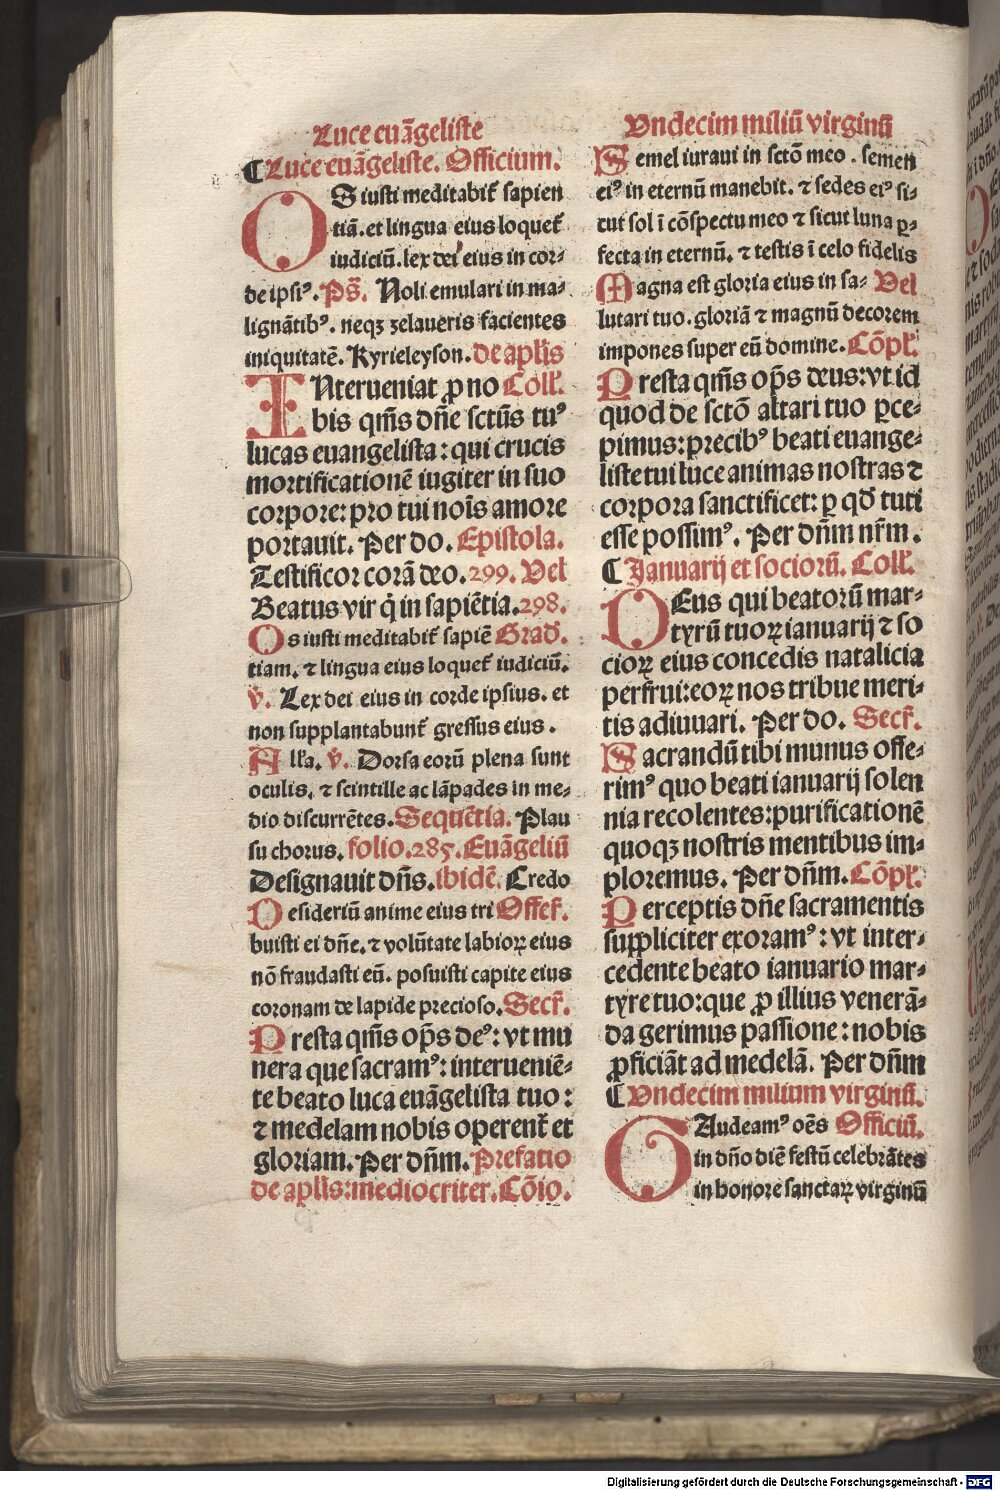 Luce euãgeliste
¶Luce euãgeliste. Officium.
OS iusti meditabit᷑ sapien
tiã. et lingua eius loquet᷑
iudiciũ. lex dei eius in cor⸗
de ipsiꝰ. Ps̃. Noli emulari in ma⸗
lignãtibꝰ. neqꝫ zelaueris facientes
iniquitatẽ. Kyrieleyson. de aplis
INterueniat ꝓ no Coll.
bis qm̃s dñe sctũs tuꝰ
lucas euangelista: qui crucis
mortificationẽ iugiter in suo
corpore: pro tui noĩs amore
portauit. Per do. Epistola.
Testificor corã deo. 299. Vel
Beatus vir q̇ in sapiẽtia. 298.
Os iusti meditabit᷑ sapiẽ Grad.
tiam. ⁊ lingua eius loquet᷑ iudiciũ.
v̇. Lex dei eius in corde ipsius. et
non supplantabunt᷑ gressus eius.
Alla. v̇. Dorsa eorũ plena sunt
oculis. ⁊ scintille ac lãpades in me⸗
dio discurrẽtes. Sequẽtia. Plau
su chorus. folio. 285. Euãgeliũ
Designauit dñs. ibidẽ. Credo
Desideriũ anime eius tri Offer̃.
buisti ei dñe. ⁊ volũtate labioꝝ eius
nõ fraudasti eũ. posuisti capite eius
coronam de lapide precioso. Secr̃.
Presta qm̃s op̃s deꝰ: vt mu
nera que sacramꝰ: interueniẽ⸗
te beato luca euãgelista tuo:
⁊ medelam nobis operent᷑ et
gloriam. Per dñm. Prefatio
de aplis: mediocriter. Cõio.
Vndecim miliũ virginũ
Semel iuraui in sctõ meo. semen
eiꝰ in eternũ manebit. ⁊ sedes eiꝰ si⸗
cut sol ĩ cõspectu meo ⁊ sicut luna ꝑ⸗
fecta in eternũ. ⁊ testis ĩ celo fidelis
Magna est gloria eius in sa⸗ Vel
lutari tuo. gloriã ⁊ magnũ decorem
impones super eũ domine. Cõpl.
Presta qm̃s op̃s deus: vt id
quod de sctõ altari tuo ꝑce⸗
pimus: precibꝰ beati euange⸗
liste tui luce animas nostras ⁊
corpora sanctificet: ꝑ qd̃ tuti
esse possimꝰ. Per dñm nr̃m.
¶Januarij et sociorũ. Coll.
DEus qui beatorũ mar⸗
tyrũ tuoꝝ ianuarij ⁊ so
cioꝝ eius concedis natalicia
perfrui: eoꝝ nos tribue meri⸗
tis adiuuari. Per do. Secr̃.
Sacrandũ tibi munus offe⸗
rimꝰ quo beati ianuarij solen
nia recolentes: purificationẽ
quoqꝫ nostris mentibus im⸗
ploremus. Per dñm. Cõpl.
Perceptis dñe sacramentis
suppliciter exoramꝰ: vt inter⸗
cedente beato ianuario mar⸗
tyre tuo: que ꝓ illius venerã⸗
da gerimus passione: nobis
ꝓficiãt ad medelã. Per dñm
¶Vndecim milium virginũ.
GAudeamꝰ oẽs Officiũ.
in dño diẽ festũ celebrãtes
in honore sanctaꝝ virginũ
Digitalisierung gefördert durch die Deutsche Forschungsgemeinschaft - DFG